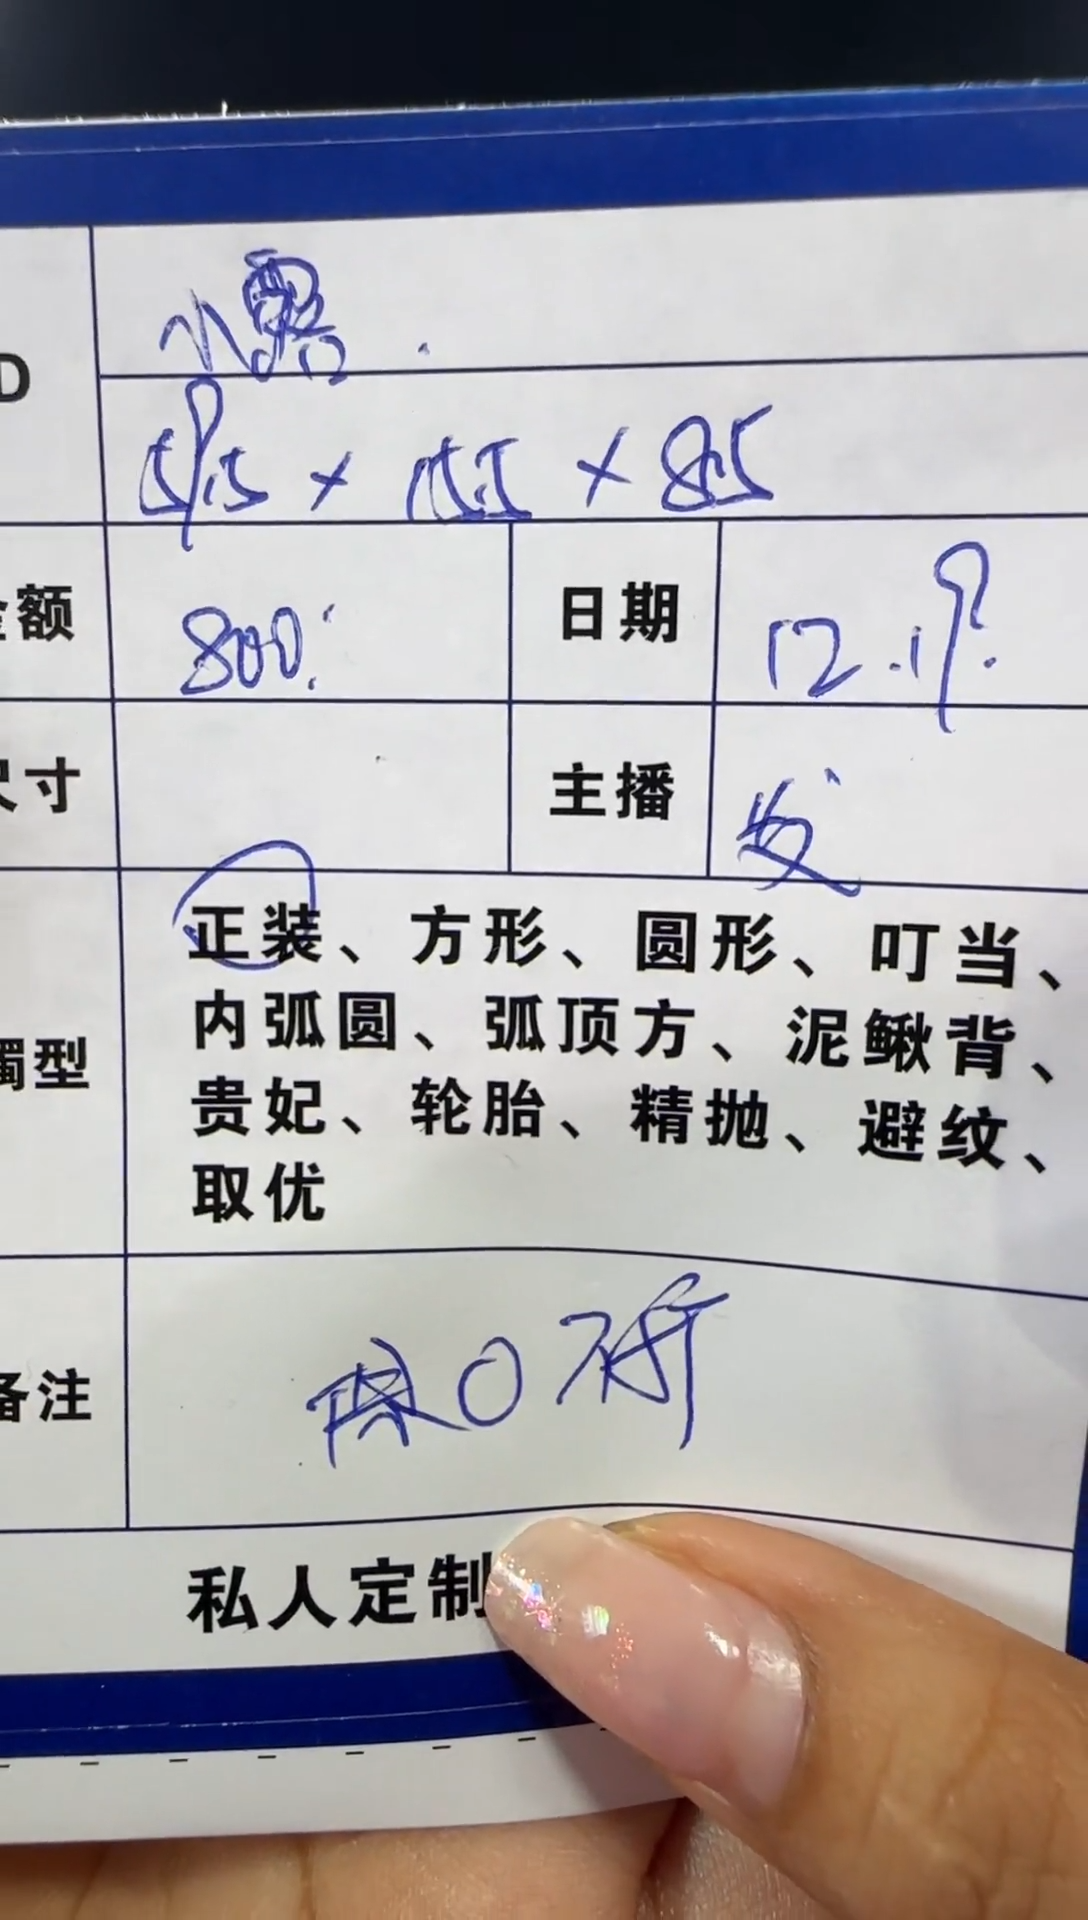 D
小露.
59.5 × 15.5 × 8.5
金额 800. 日期 12.19.
尺寸 主播
正装、方形、圆形、叮当、
内弧圆、弧顶方、泥鳅背、
镯型
贵妃、轮胎、精抛、避纹、
取优
备注
私人定制